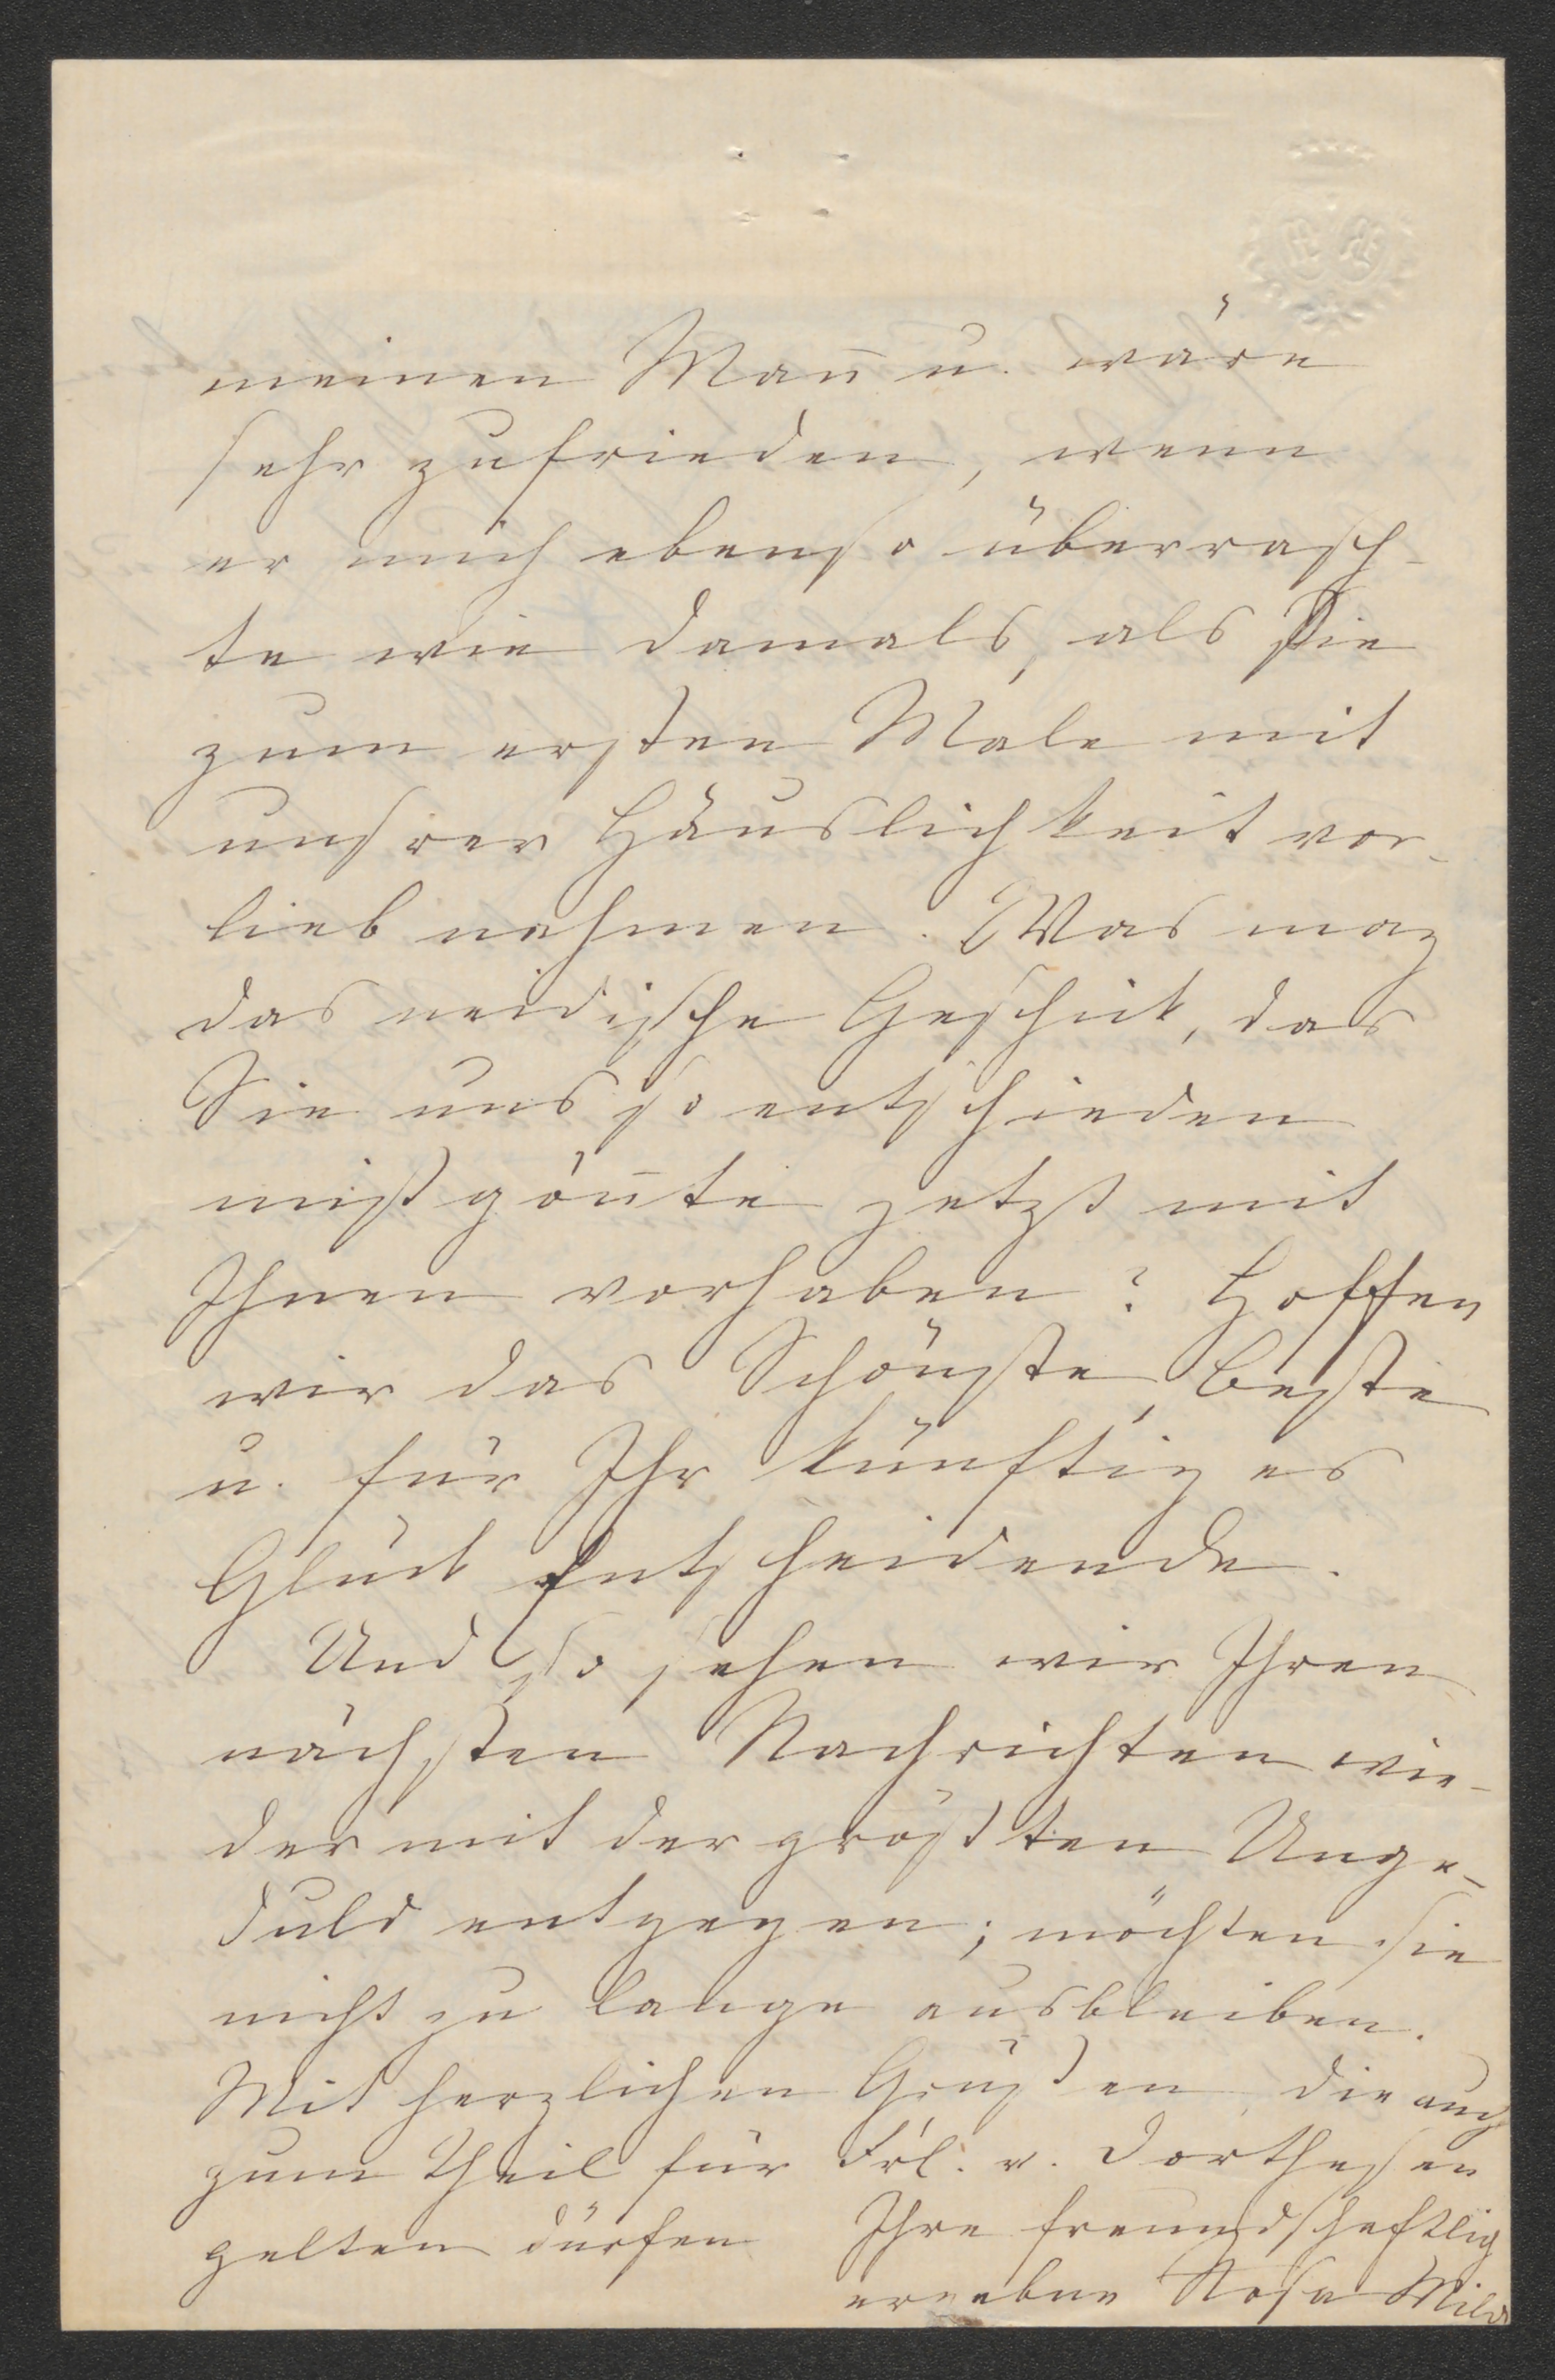 meinen Man̄ u. wäre
sehr zufrieden, wenn
er mich ebenso überrasch-
te wie damals, als Sie
zum ersten Male mit
unsrer Häuslichkeit vor-
lieb nahmen. Was mag
das neidische Geschick, das
Sie uns so entschieden
mißgön̄te jetzt mit
Ihnen vorhaben? Hoffen
wir das Schönste, Beste
u. für Ihr künftiges
Glück Entscheidende.
Und so sehen wir Ihren
nächsten Nachrichten wie-
der mit der größten Unge-
duld entgegen; möchten sie
nicht zu lange ausbleiben.
Mit herzlichen Grüßen, die auch
zum Theil für Frl. v. Dorthesen
gelten dürfen Ihre freundschaftlich
ergebne Rosa Milde